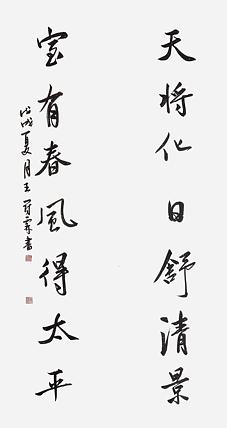 天将化日舒清景
室有春風得太平
戊戌夏月王霖書